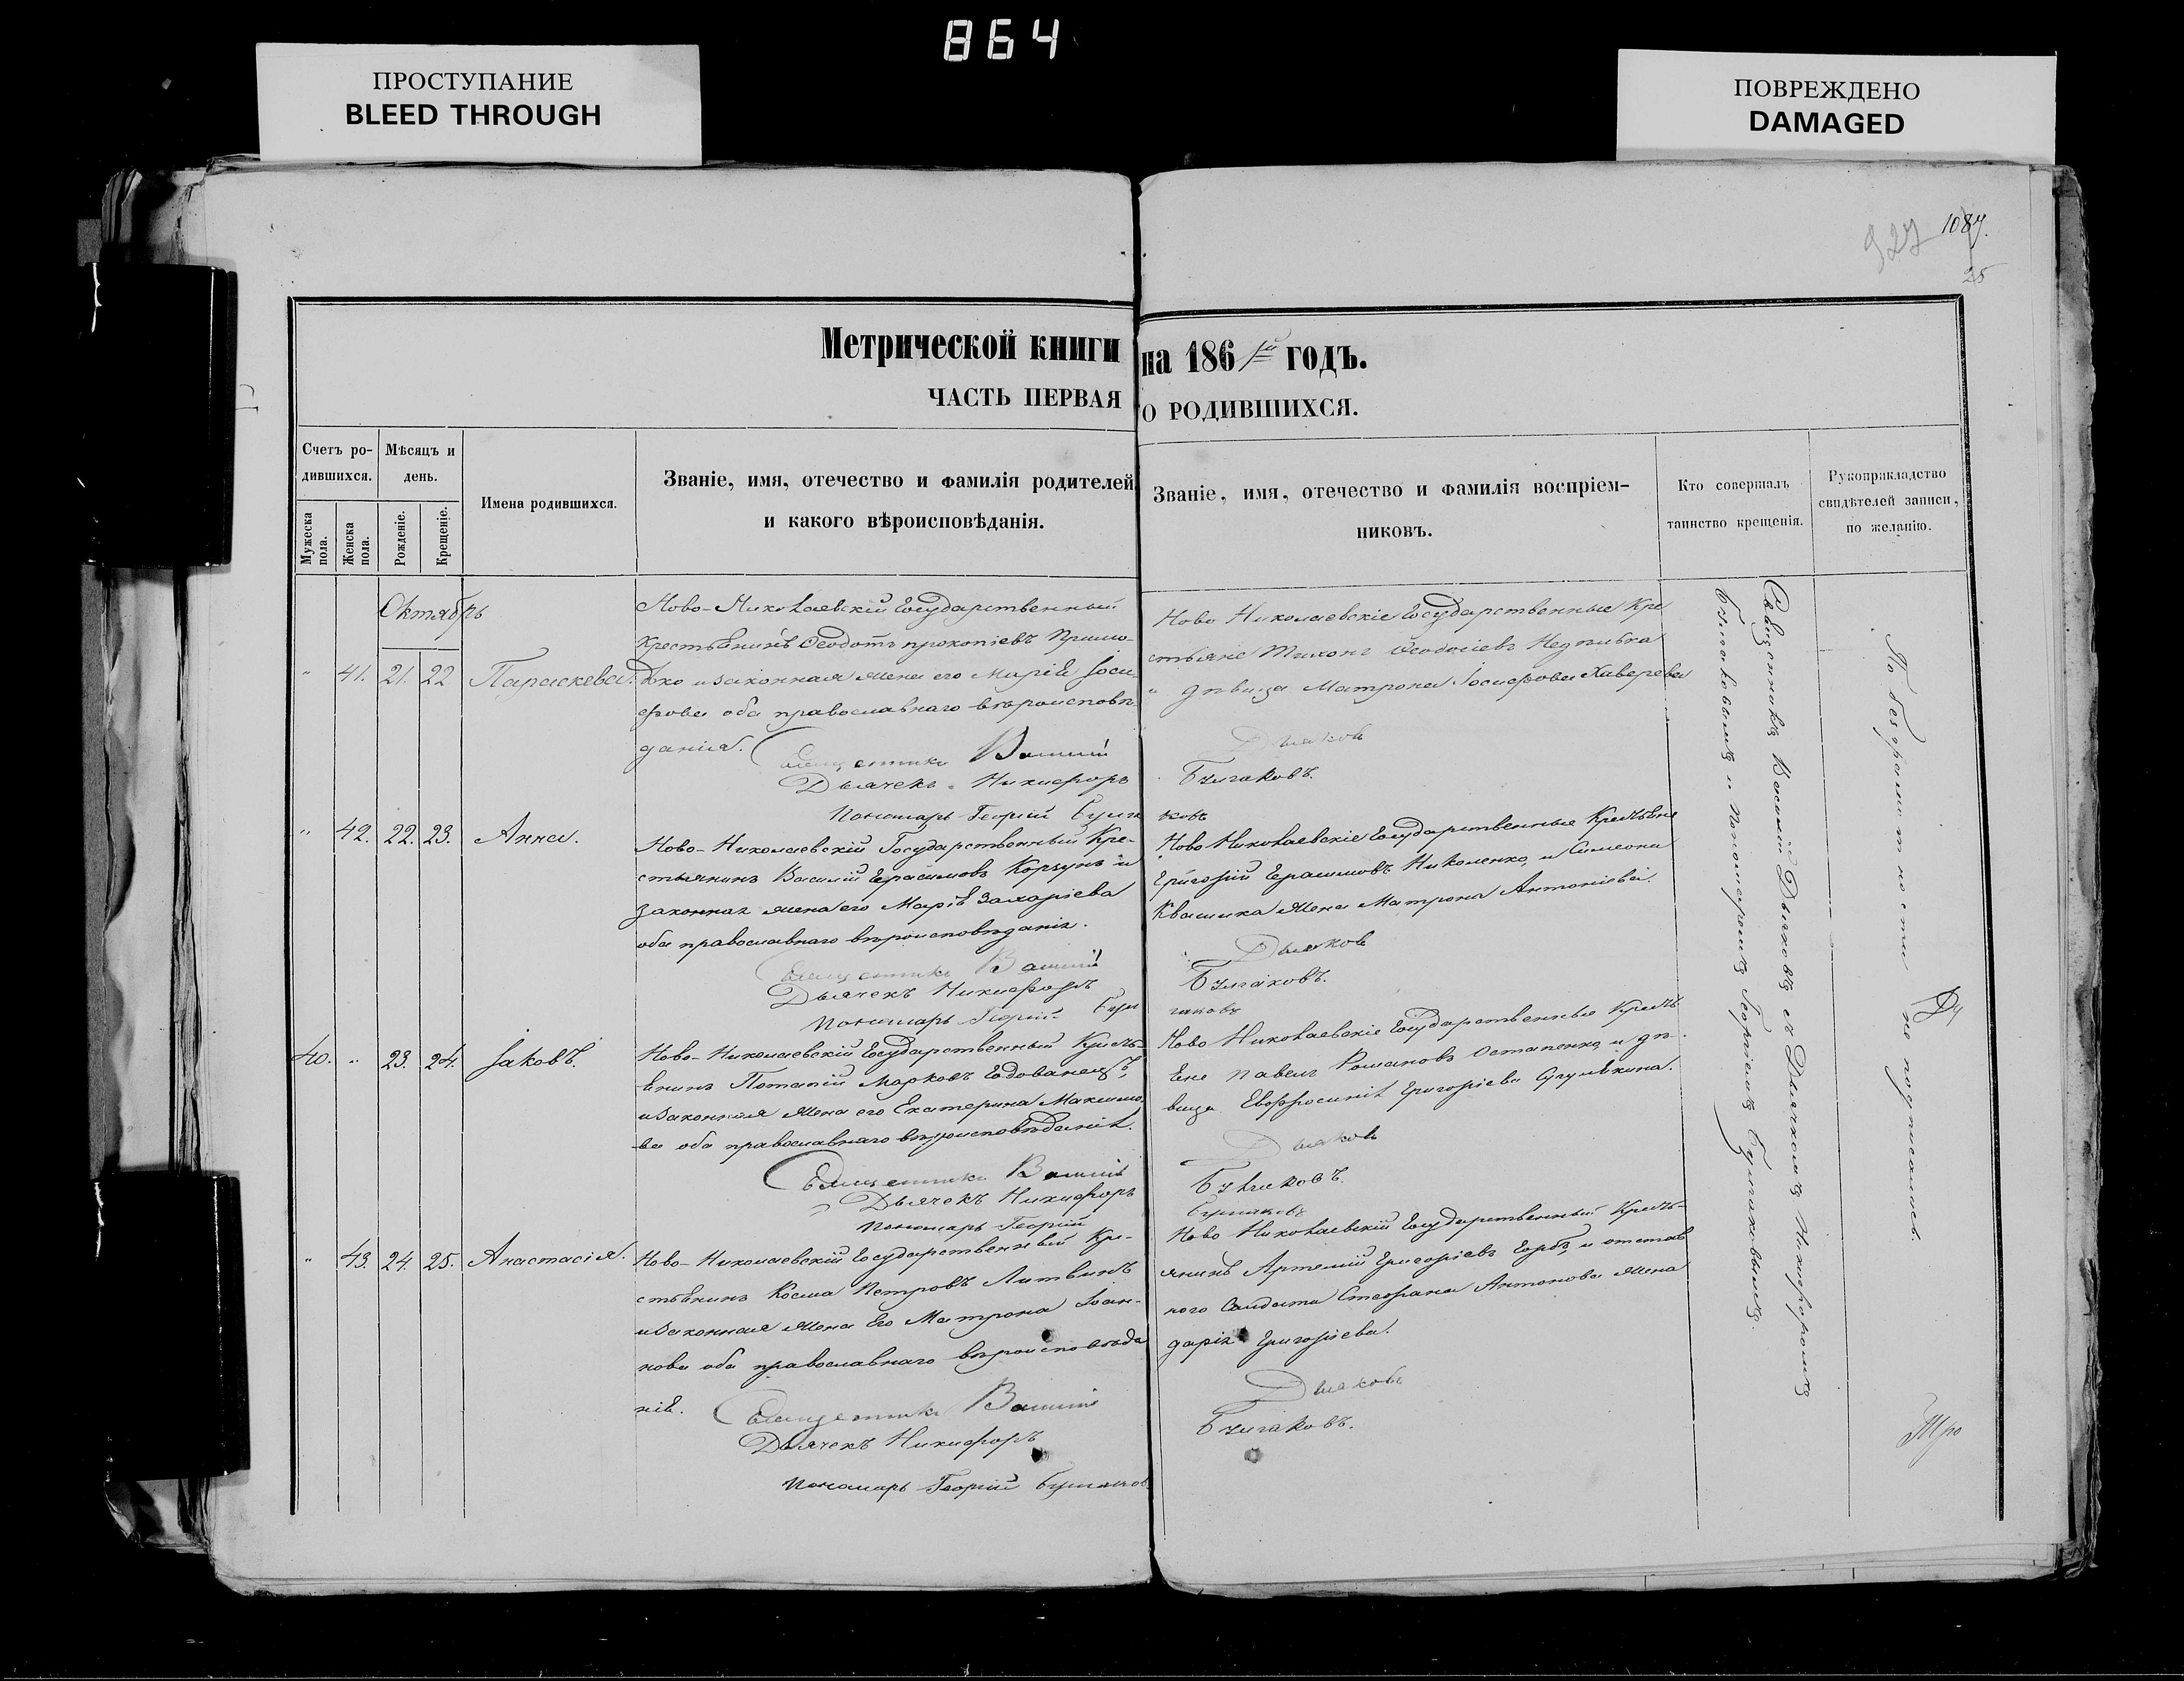 864
ПРОСТУПАНИЕ
BLEED THROUGH
ПОВРЕЖДЕНО
DAMAGED
927
1087.
25
Метрической книги на 1861й годъ.
ЧАСТЬ ПЕРВАЯ О РОДИВШИХСЯ.
Счетъ ро-
дившихся.
Мужеска
пола.
Женска
пола.
Мѣсяцъ и
день.
Рожденіе.
Крещеніе.
Имена родившихся.
Званіе, имя, отечество и фамилія родителей
и какого вѣроисповѣданія.
Званіе, имя, отечество и фамилія воспріем-
никовъ.
Кто совершалъ
таинство крещенія.
Рукоприкладство
свидѣтелей записи,
по желанію.
Октябрь
" 41. 21. 22 Параскева.
Ново-Николаевскій Государственный
Крестьянинъ Ѳеодотъ прокопіевъ
и законная жена его Марія Іоси-
фова оба православнаго вѣроисповѣ-
данія.
Священникъ Василій
Дьячекъ Никифоръ
Пономарь Георгій Булга
Ново Николаевскіе Государственные Кре
стьяне Тихонъ Ѳеодосіевъ
и дѣвица Матрона Іосифова
Дьяков
Булгаковъ.
ковъ
" 42. 22. 23. Анна.
Ново-Николаевскій Государственный Кре-
стьянинъ Василій Герасимовъ Корзунъ и
законная жена его Марія Захаріева
оба православнаго вѣроисповѣданія.
Священникъ Василій
Дьячекъ Никифоръ
Пономарь Георгій Бул
Ново Николаевскіе Государственные Крестьяне
Григорій Герасимовъ Николенко и Симеона
Квашика жена Матрона Антоніева.
Дьяков
Булгаковъ.
гаковъ
40. " 23. 24. Іаковъ.
Ново-Николаевскій Государственный Кресть-
янинъ Потапій Марковъ Годованецъ,
и законная жена его Екатерина Максимо-
ва оба православнаго вѣроисповѣданія.
Священникъ Василій
Дьячекъ Никифоръ
Пономарь Георгій
Ново Николаевскіе Государственные Кресть
яне Павелъ Романовъ Остапенко и дѣ-
вица Евфросинія Григоріева
Дьяков
Булгаковъ.
Булгаковъ
" 43. 24. 25. Анастасія.
Ново-Николаевскій Государственный Кре-
стьянинъ Косма Петровъ Литвинъ
и законная жена Его Матрона Іоан-
нова оба православнаго вѣроисповѣда
нія.
Священникъ Василій
Дьячекъ Никифоръ
Пономарь Георгій Булгаков
Ново Николаевскій Государственный Кресть-
янинъ Артемій Григоріевъ Горбъ и отстав
ного Солдата Стефана Антонова жена
дарія Григоріева.
Дьякові
Булгаковъ.
Священникъ Василій Дьяковъ съ Дьячкомъ Никифоромъ
Булгаковымъ и Пономаремъ Георгіемъ Булгаковымъ.
По безграмотности не подписались.